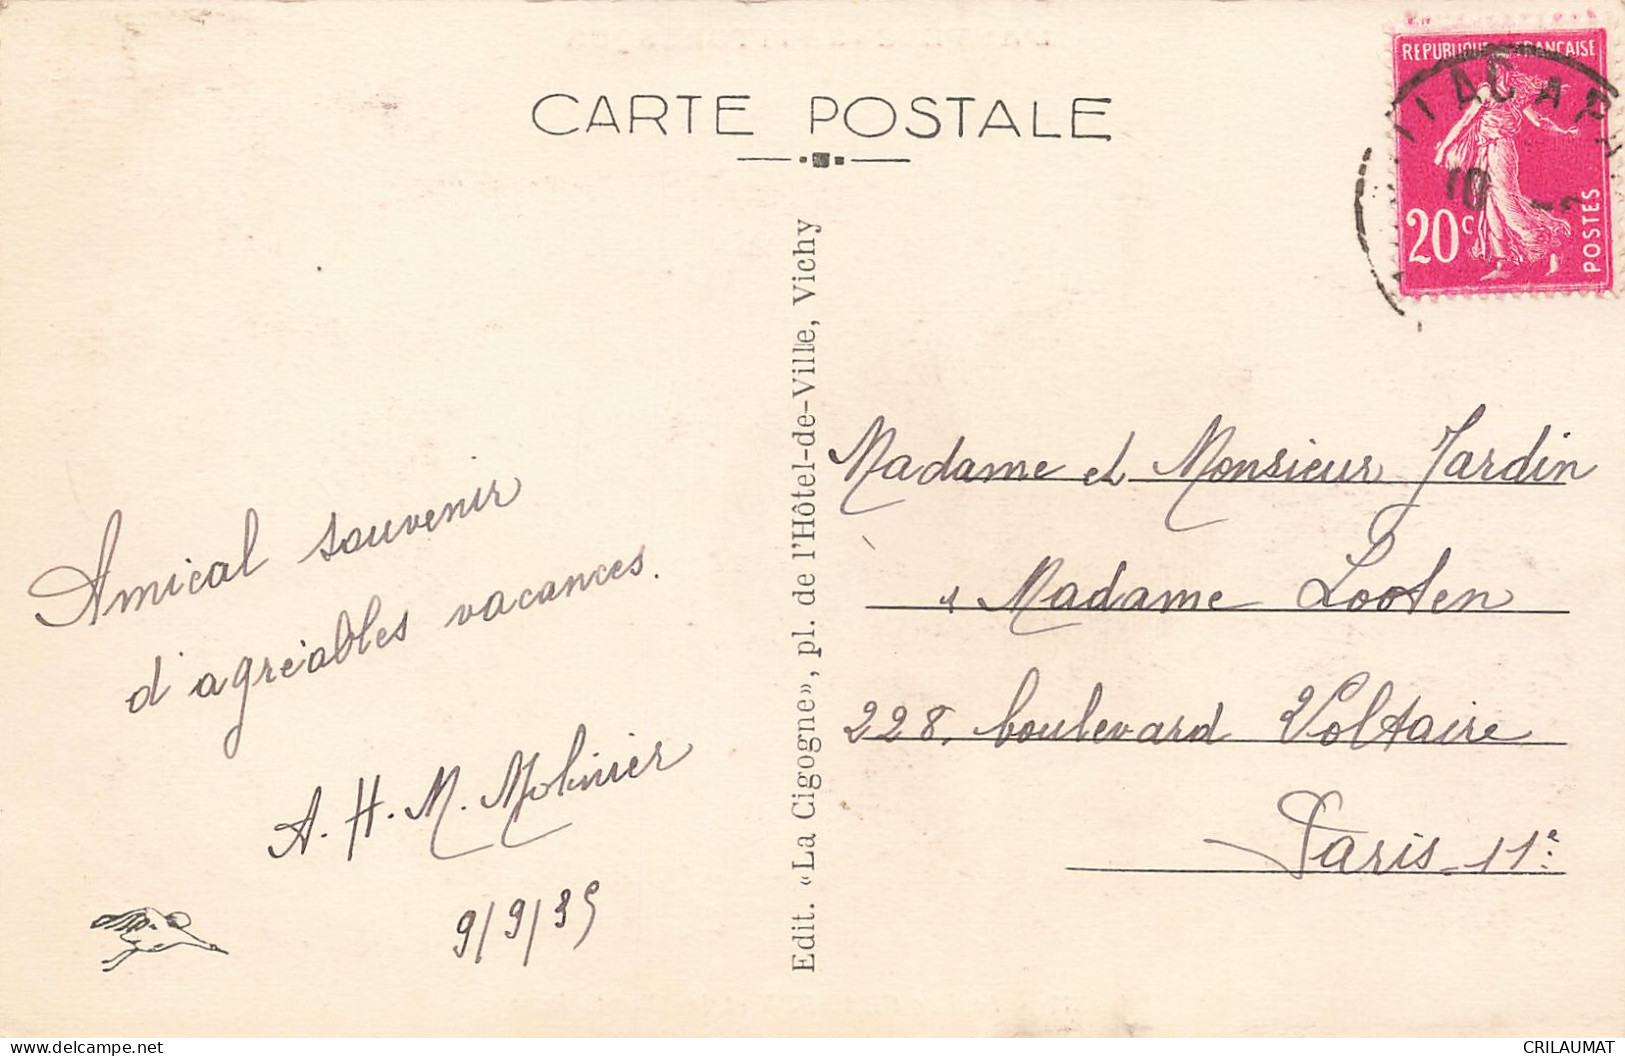 CARTE POSTALE
REPUBLIQUE FRANCAISE
20c
POSTES
10
Amical souvenir
d'agréables vacances.
A. H. M. Molinier
9/9/35
Edit. «La Cigogne», pl. de l'Hôtel-de-Ville, Vichy
Madame et Monsieur Jardin
Madame Looten
228, boulevard Voltaire
Paris-11e
delcampe.net
CRILAUMAT